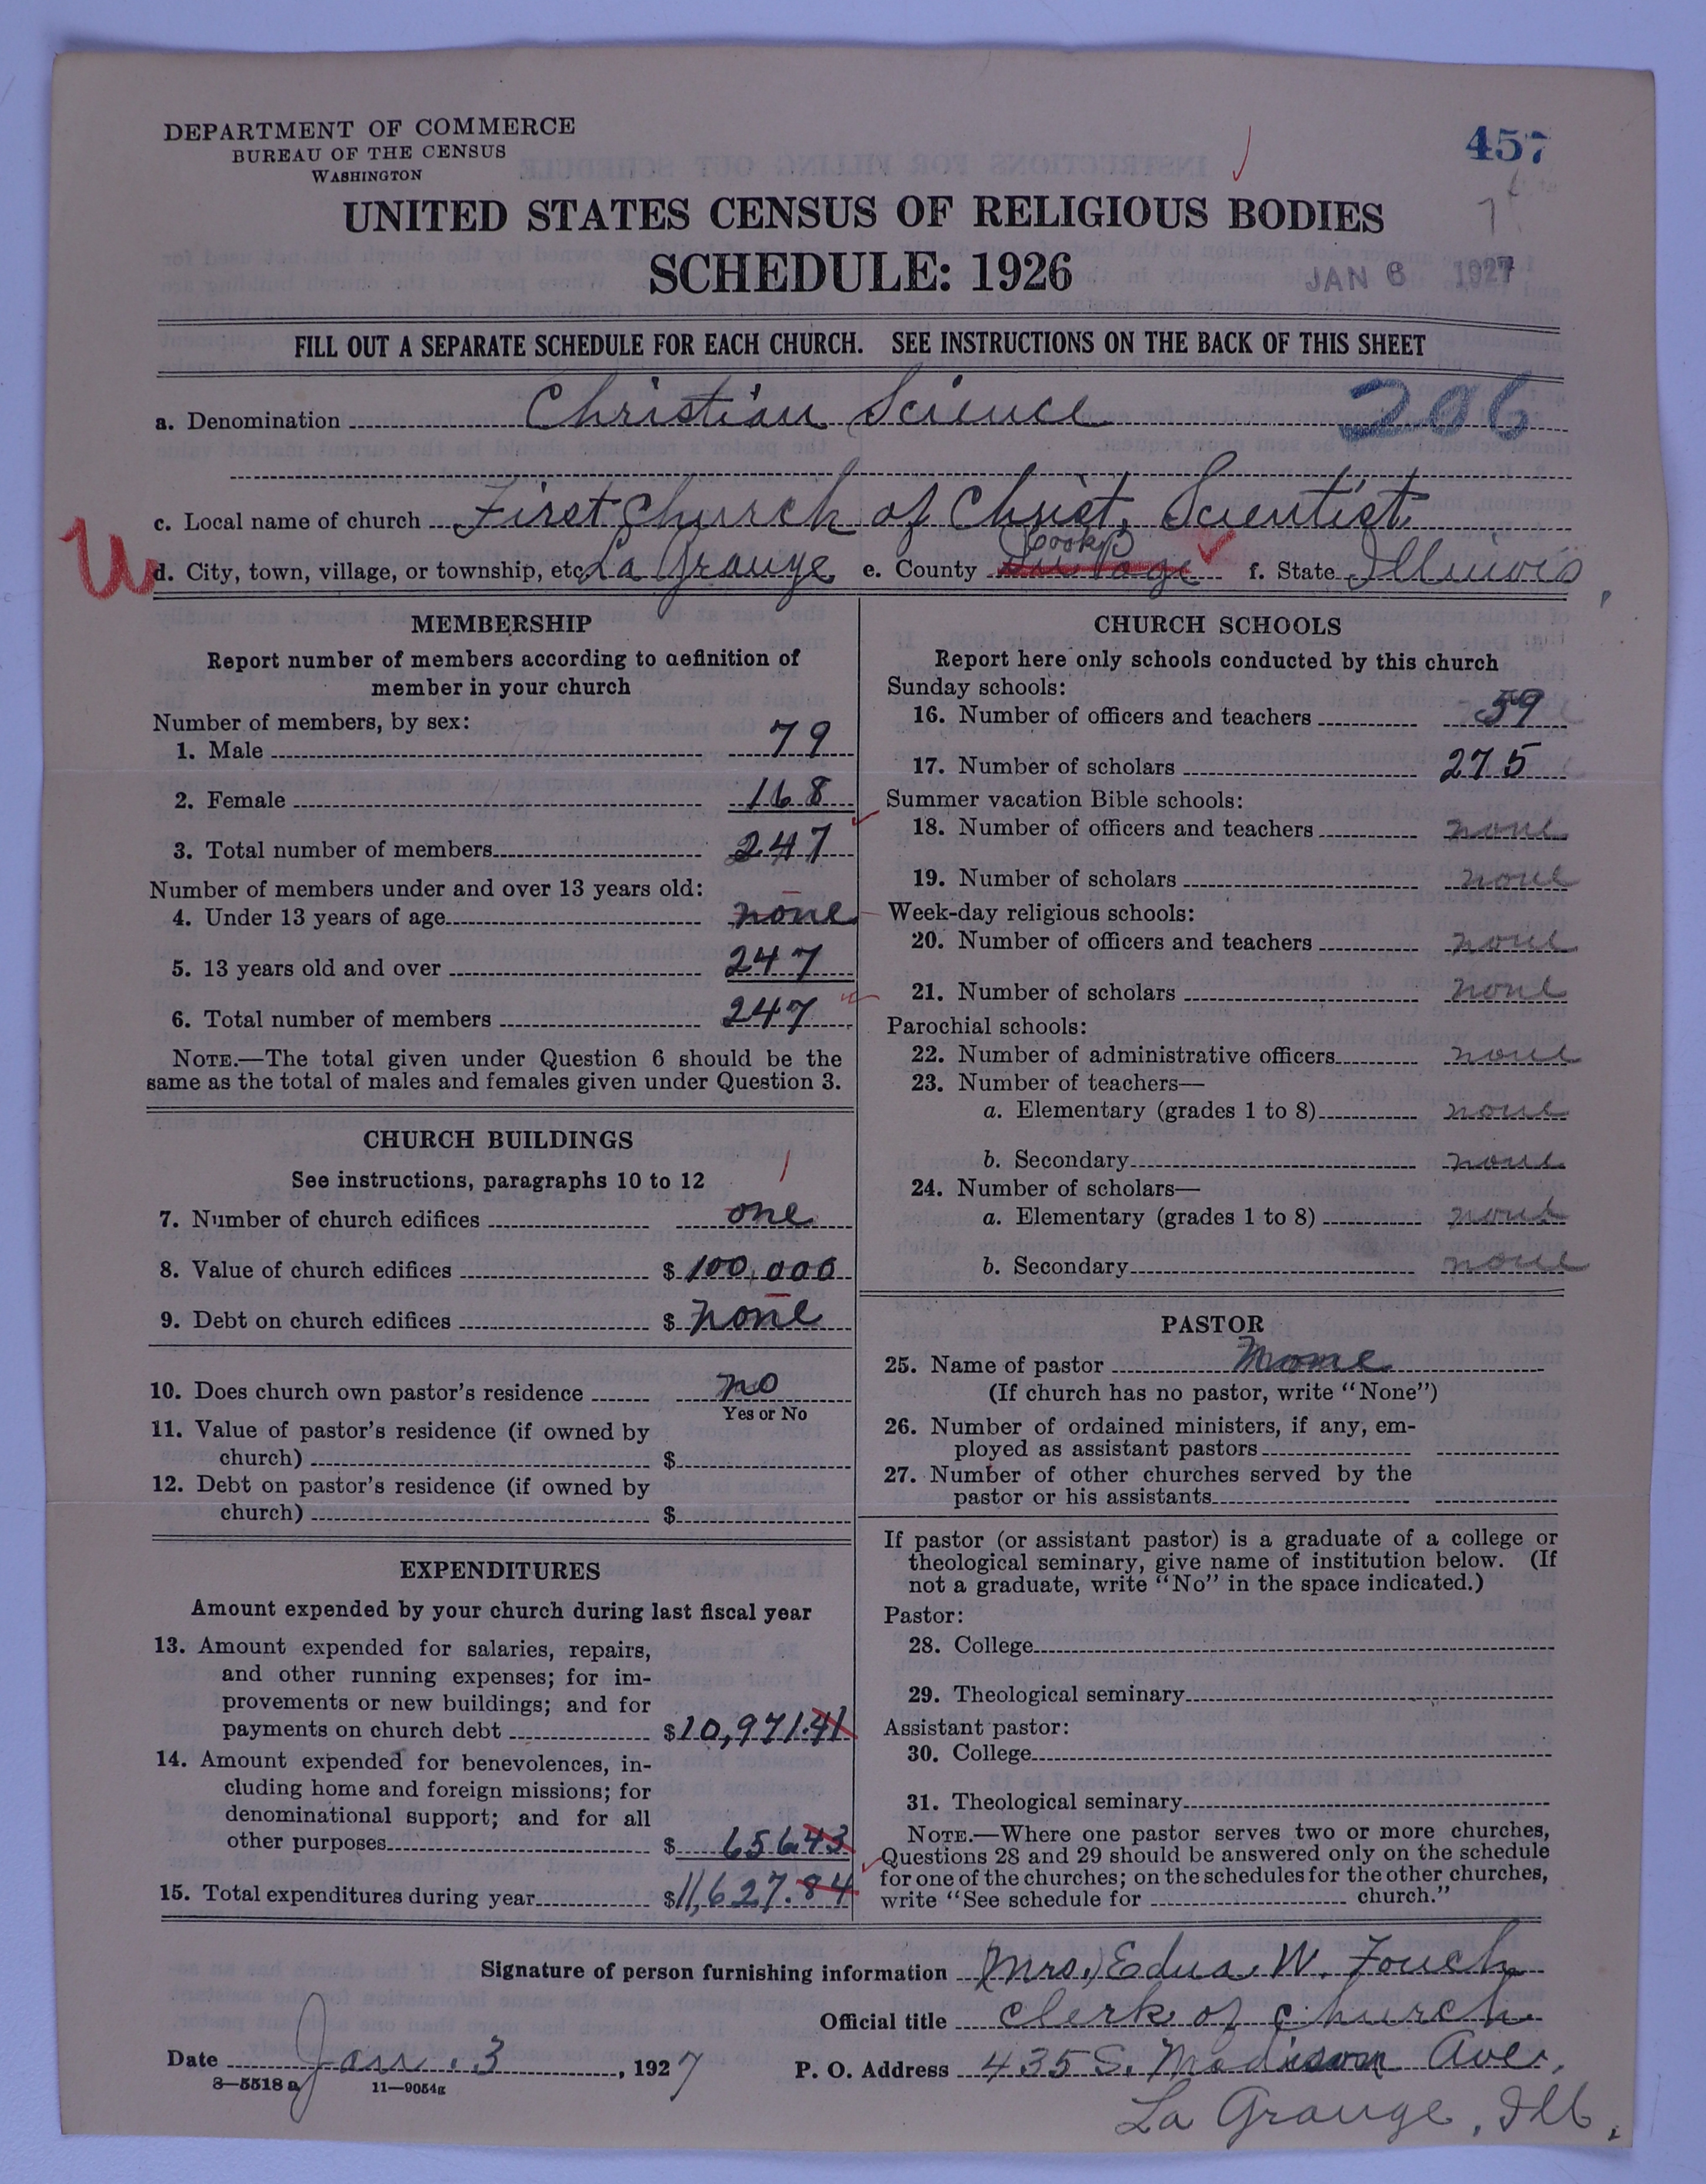 DEPARTMENT OF COMMERCE
BUREAU OF THE CENSUS
WASHINGTON
457
UNITED STATES CENSUS OF RELIGIOUS BODIES
SCHEDULE: 1926
JAN 6 1927
FILL OUT A SEPARATE SCHEDULE FOR EACH CHURCH. SEE INSTRUCTIONS ON THE BACK OF THIS SHEET
a. Denomination Christian Science 206
c. Local name of church First Church of Christ, Scientist
d. City, town, village, or township, etc. La Grange e. County Du Page Cook f. State Illinois
MEMBERSHIP
Report number of members according to definition of
member in your church
Number of members, by sex:
1. Male 79
2. Female 168
3. Total number of members 247
Number of members under and over 13 years old:
4. Under 13 years of age none
5. 13 years old and over 247
6. Total number of members 247
NOTE.—The total given under Question 6 should be the
same as the total of males and females given under Question 3.
CHURCH BUILDINGS
See instructions, paragraphs 10 to 12
7. Number of church edifices one
8. Value of church edifices $ 100,000
9. Debt on church edifices $ none
10. Does church own pastor's residence no
Yes or No
11. Value of pastor's residence (if owned by
church) $
12. Debt on pastor's residence (if owned by
church) $
EXPENDITURES
Amount expended by your church during last fiscal year
13. Amount expended for salaries, repairs,
and other running expenses; for im-
provements or new buildings; and for
payments on church debt $10,971.41
14. Amount expended for benevolences, in-
cluding home and foreign missions; for
denominational support; and for all
other purposes $ 656 43
15. Total expenditures during year $11,627.84
CHURCH SCHOOLS
Report here only schools conducted by this church
Sunday schools:
16. Number of officers and teachers 39
17. Number of scholars 275
Summer vacation Bible schools:
18. Number of officers and teachers none
19. Number of scholars none
Week-day religious schools:
20. Number of officers and teachers none
21. Number of scholars none
Parochial schools:
22. Number of administrative officers none
23. Number of teachers—
a. Elementary (grades 1 to 8) none
b. Secondary none
24. Number of scholars—
a. Elementary (grades 1 to 8) none
b. Secondary none
PASTOR
25. Name of pastor None
(If church has no pastor, write "None")
26. Number of ordained ministers, if any, em-
ployed as assistant pastors
27. Number of other churches served by the
pastor or his assistants
If pastor (or assistant pastor) is a graduate of a college or
theological seminary, give name of institution below. (If
not a graduate, write "No" in the space indicated.)
Pastor:
28. College
29. Theological seminary
Assistant pastor:
30. College
31. Theological seminary
NOTE.—Where one pastor serves two or more churches,
Questions 28 and 29 should be answered only on the schedule
for one of the churches; on the schedules for the other churches,
write "See schedule for church."
Signature of person furnishing information (Mrs.) Edna W. Fouch
Official title Clerk of church
Date Jan. 3, 1927 P. O. Address 435 S. Madison Ave.,
8—5518 a 11—9054g
La Grange, Ill.